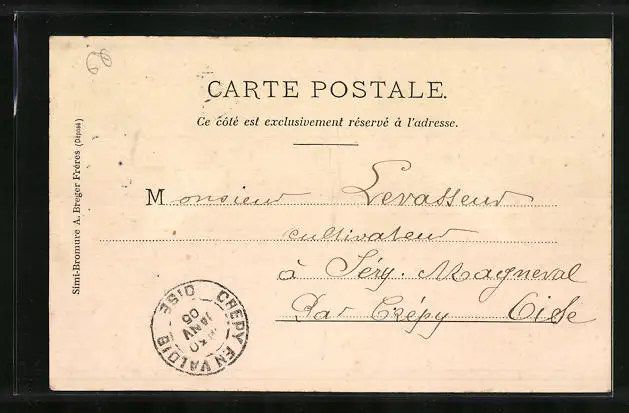 CARTE POSTALE.
Ce côté est exclusivement réservé à l'adresse.
Monsieur Levasseur
cultivateur
à Séry. Magneval
Par Crépy Oise
Simi-Bromure A. Breger Frères (Déposé)
CREPY EN VALOIS OISE
30 JANV 05